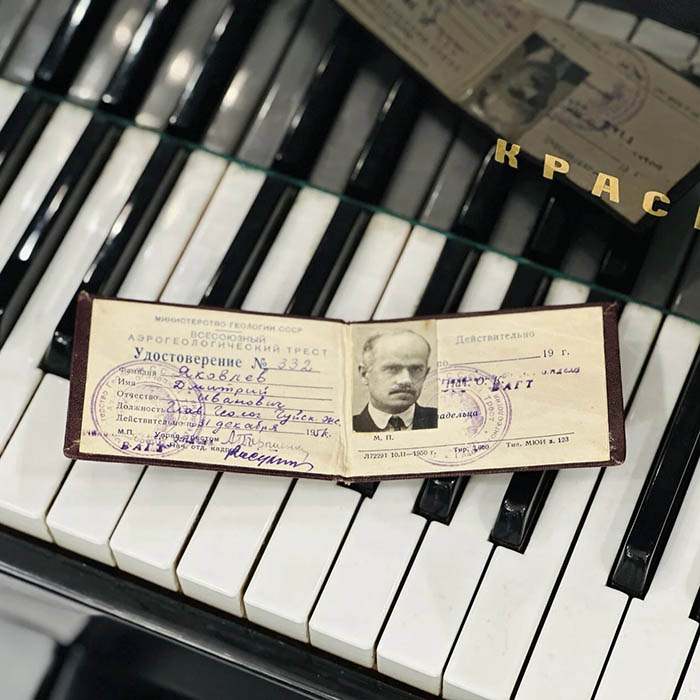 КРАС
МИНИСТЕРСТВО ГЕОЛОГИИ СССР
ВСЕСОЮЗНЫЙ
АЭРОГЕОЛОГИЧЕСКИЙ ТРЕСТ
Удостоверение № 332
Фамилия Яковлев
Имя Дмитрий
Отчество Иванович
Должность Глав. Геолог
Действительно по 31 декабря 195
М.П. Управ. трестом
ВАГТ Нач. отд. кадров
Действительно
по 19 г.
ВАГТ
владельца
М. П.
Л72291 10.II—1950 г. Тир. Тип. МЮИ з. 123